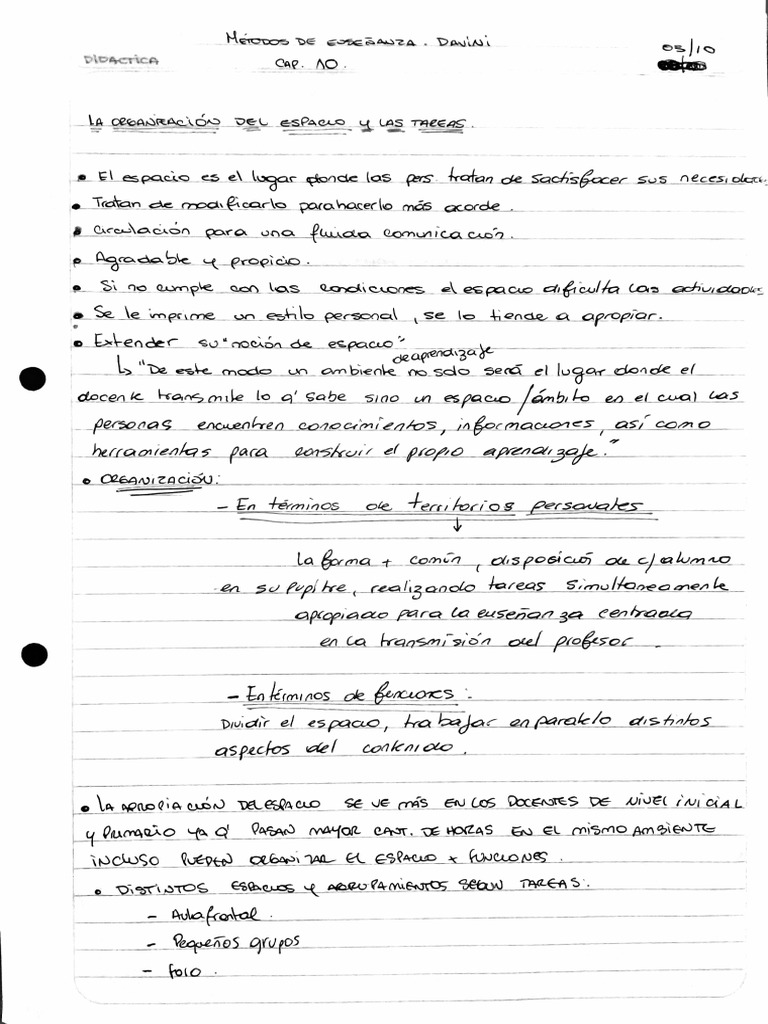 MÉTODOS DE ENSEÑANZA. DAVINI
05/10
DIDACTICA
CAP. 10.
LA ORGANIZACIÓN DEL ESPACIO Y LAS TAREAS.
• El espacio es el lugar donde las pers. tratan de sactisfacer sus necesidad
• Tratan de modificarlo para hacerlo más acorde.
• circulación para una fluida comunicación.
• Agradable y propicio.
• Si no cumple con las condiciones el espacio dificulta las actividades
• Se le imprime un estilo personal, se lo tiende a apropiar.
• Extender su "noción de espacio"
de aprendizaje
↳ "De este modo un ambiente no solo será el lugar donde el
docente transmite lo q' sabe sino un espacio/ámbito en el cual las
personas encuentren conocimientos, informaciones, así como
herramientas para construir el propio aprendizaje."
• ORGANIZACIÓN:
- En términos de territorios personales
↓
la forma + común, disposición de c/alumno
en su pupitre, realizando tareas simultaneamente
apropiado para la enseñanza centrada
en la transmisión del profesor.
- En términos de funciones:
Dividir el espacio, trabajar en paralelo distintos
aspectos del contenido.
• LA APROPIACIÓN DEL ESPACIO SE VE MÁS EN LOS DOCENTES DE NIVEL INICIAL
Y PRIMARIO YA Q' PASAN MAYOR CANT. DE HORAS EN EL MISMO AMBIENTE
INCLUSO PUEDEN ORGANIZAR EL ESPACIO + FUNCIONES.
• DISTINTOS ESPACIOS Y AGRUPAMIENTOS SEGUN TAREAS:
- Aula frontal.
- Pequeños grupos
- Foro.